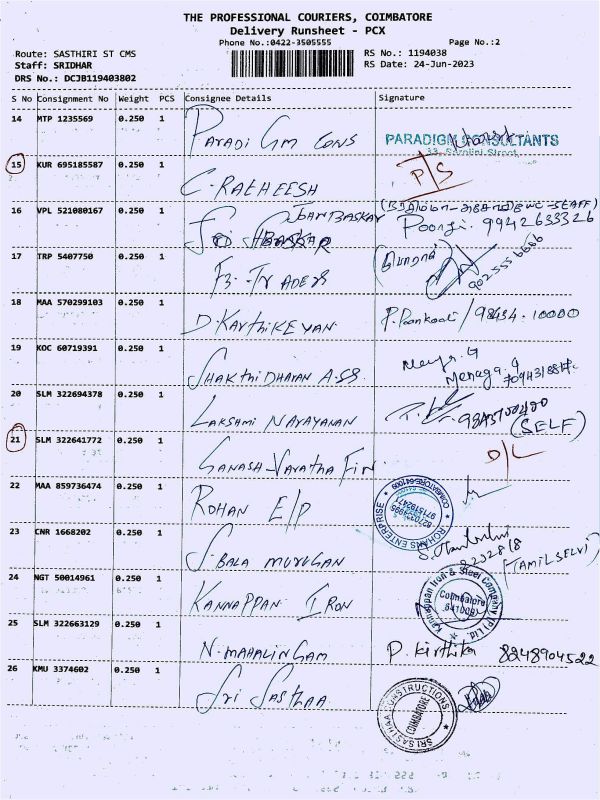 THE PROFESSIONAL COURIERS, COIMBATORE
Delivery Runsheet - PCX
Phone No.:0422-3505555
Page No.:2
Route: SASTHIRI ST CMS
RS No.: 1194038
Staff: SRIDHAR
RS Date: 24-Jun-2023
DRS No.: DCJB119403802
S No Consignment No Weight PCS Consignee Details Signature
14 MTP 1235569 0.250 1 Paradi Gm Cons
PARADIGM CONSULTANTS
33, Sarojini Street,
15 KUR 695185587 0.250 1 C. RATHEESH
P/S
16 VPL 521080167 0.250 1 Sri BASKAR
Poongi. 9942633326
17 TRP 5407750 0.250 1 F3-TRADERS
18 MAA 570299103 0.250 1 D. KARTHIKEYAN
P. Poonkodi / 98434-10000
19 KOC 60719391 0.250 1 SHAKTHI DHARAN ASS
Menaga. G
20 SLM 322694378 0.250 1 LAKSHMI NARAYANAN
(SELF)
21 SLM 322641772 0.250 1 GANASH VARATHA FIN
D/L
22 MAA 859736474 0.250 1 ROHAN E/P
ROHAN'S ENTERPRISE
COIMBATORE-641009
23 CNR 1668202 0.250 1 S. BALA MURUGAN
(TAMIL SELVI)
24 NGT 50014961 0.250 1 KANNAPPAN IRON
Kannappan Iron & Steel Company (P) Ltd.
Coimbatore
641009
25 SLM 322663129 0.250 1 N. MAHALINGAM
P. Kirthika 8248904522
26 KMU 3374602 0.250 1 Sri SASTHAA
SRI SASTHAA CONSTRUCTIONS
COIMBATORE